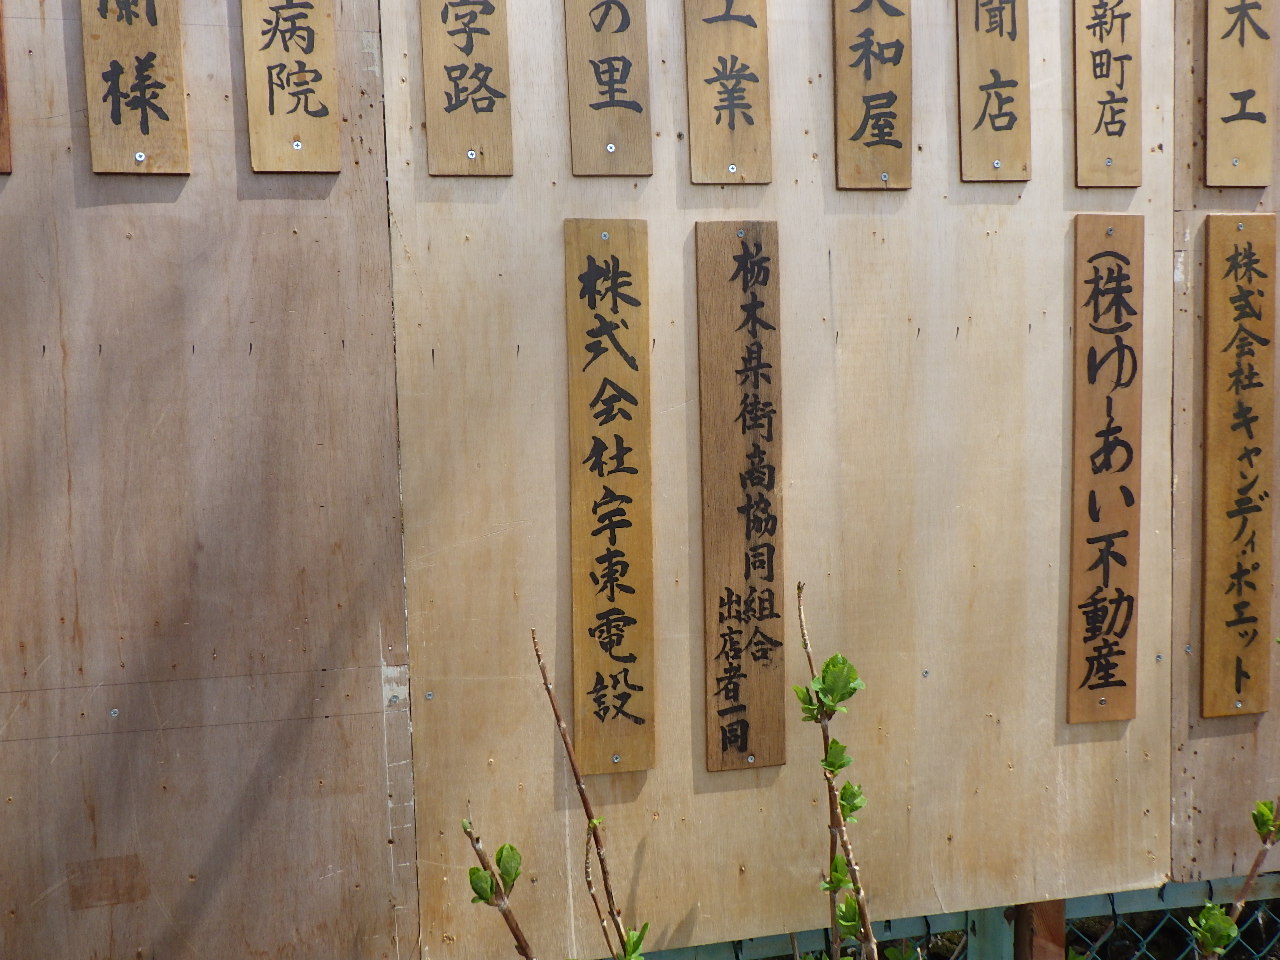 木工
新町店
聞店
大和屋
工業
の里
字路
病院
蘭様
株式会社キャンディ・ポエット
(株)ゆーあい不動産
栃木県街商協同組合
出店者一同
株式会社宇東電設